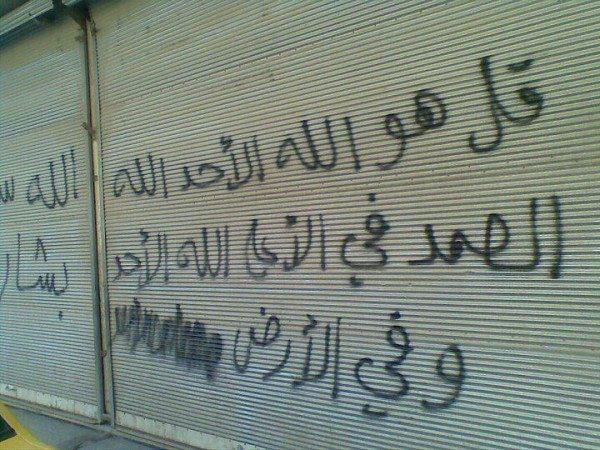 قل هو الله الأحد الله
الصمد في الأعلى الله الأحد
وفي الأرض
الله
بشار